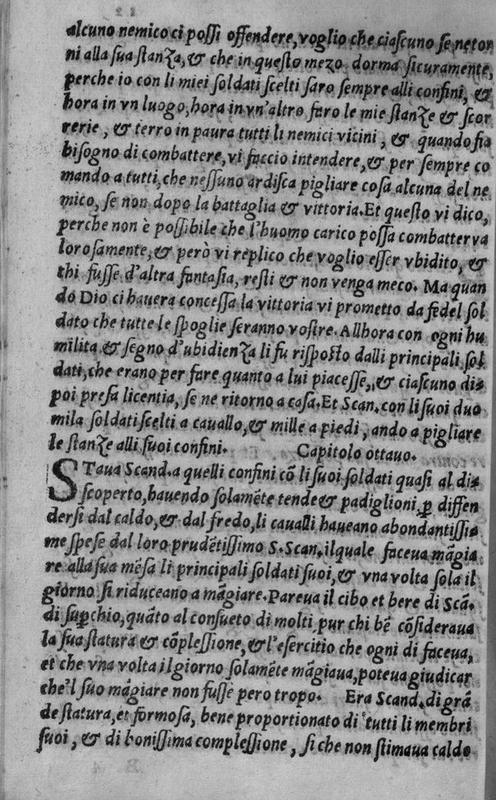 alcuno nemico ci possi offendere, voglio che ciascuno se ne tor
ni alla sua stanza, & che in questo mezo dorma sicuramente,
perche io con li miei soldati scelti saro sempre alli confini, &
hora in vn luogo, hora in vn'altro faro le mie stanze & scor
rerie, & terro in paura tutti li nemici vicini, & quando fia
bisogno di combattere, vi faccio intendere, & per sempre co
mando a tutti, che nessuno ardisca pigliare cosa alcuna del ne
mico, se non dopo la battaglia & vittoria. Et questo vi dico,
perche non è possibile che l'huomo carico possa combatter va
lorosamente, & però vi replico che voglio esser vbidito, &
chi fusse d'altra fantasia, resti & non venga meco. Ma quan
do Dio ci hauera concessa la vittoria vi prometto da fedel sol
dato che tutte le spoglie seranno vostre. Allhora con ogni hu
milita, & segno d'ubidienza li fu risposto dalli principali sol
dati, che erano per fare quanto a lui piacesse, & ciascuno di
poi presa licentia, se ne ritorno a casa. Et Scan. con li suoi duo
mila soldati scelti a cauallo, & mille a piedi, ando a pigliare
le stanze alli suoi confini. Capitolo ottauo.
STaua Scand. a quelli confini cō li suoi soldati quasi al di
scoperto, hauendo solamēte tende & padiglioni, ꝑ diffen
dersi dal caldo, & dal fredo, li caualli haueano abondantissi
me spese dal loro prudētissimo S. Scan. ilquale faceua māgia
re alla sua mēsa li principali soldati suoi, & vna volta sola il
giorno si riduceano a māgiare. Pareua il cibo et bere di Scā.
di suꝑchio, quāto al consueto di molti, pur chi bē cōsideraua
la sua statura & cōplessione, & l'esercitio che ogni di faceua,
et che vna volta il giorno solamēte māgiaua, poteua giudicar
che'l suo māgiare non fusse pero tropo. Era Scand. di grā
de statura, et formosa, bene proportionato di tutti li membri
suoi, & di bonissima complessione, si che non stimaua caldo